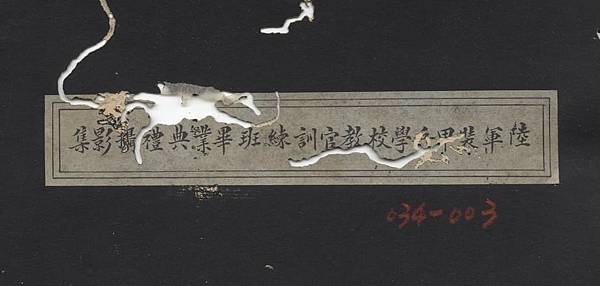 陸軍裝甲兵學校教官訓練班畢業典禮攝影集
034-003